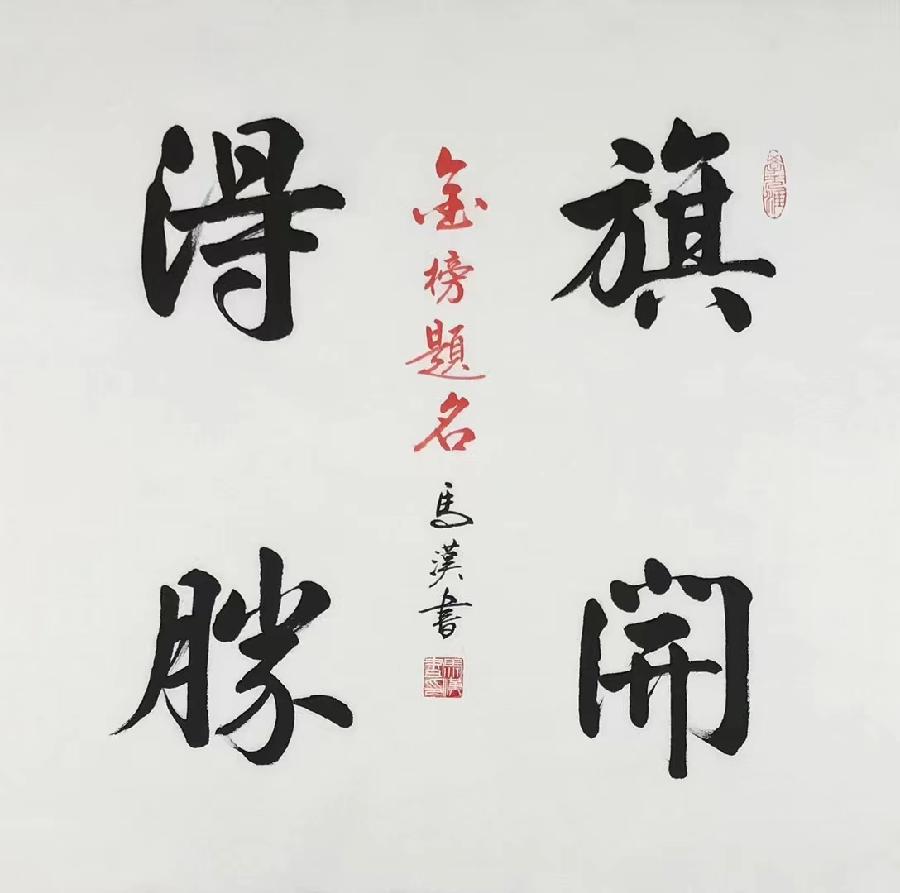 旗開
金榜題名 馬漢書
得勝